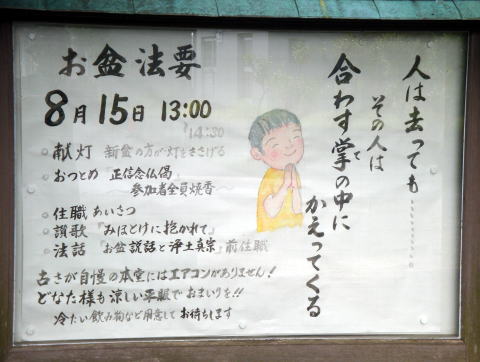 お盆法要
8月15日 13:00
14:30
献灯 新盆の方が灯をささげる
おつとめ『正信念仏偈』
参加者全員焼香
住職 あいさつ
讃歌『みほとけに抱かれて』
法話『お盆説話と浄土真宗』前住職
古さが自慢の本堂にはエアコンがありません!
どなた様も涼しい平服でおまいりを!!
冷たい飲み物など用意してお待ちします
人は去っても…………
その人は
合わす掌の中に
て
かえってくる